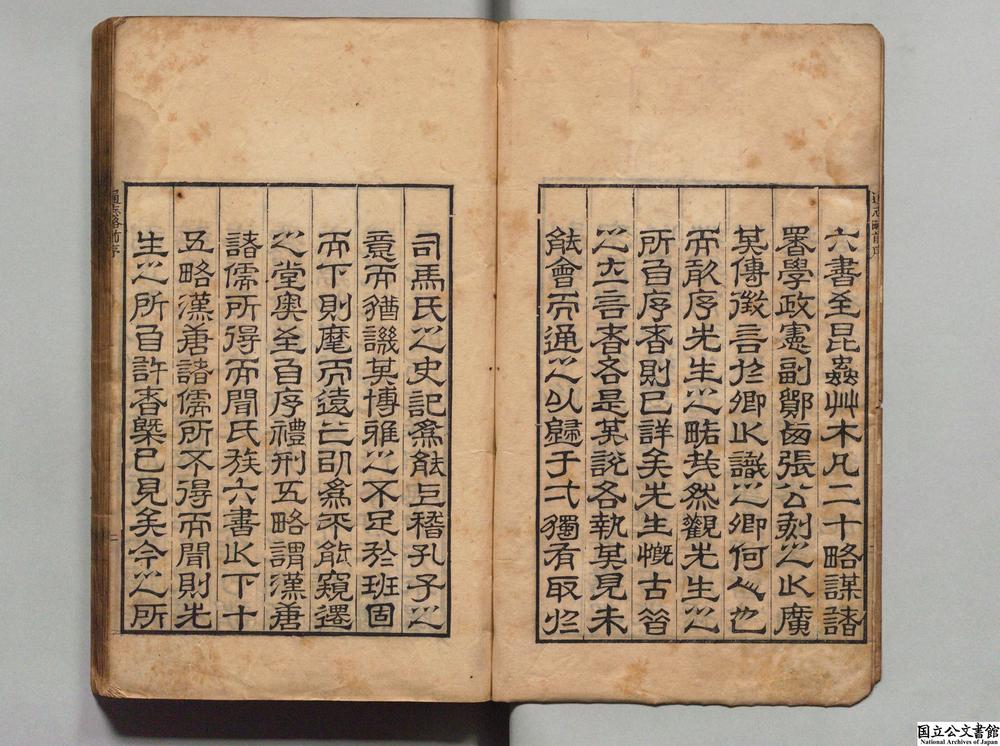 通志略前序
六書至昆蟲艸木凡二十略謀諸
署學政憲副鄭鹵張公刻之以廣
其傳徵言於卿以識之卿何人也
而敢序先生之略哉然觀先生之
所自序者則已詳矣先生慨古昔
之立言者各是其說各執其見未
能會而通之以歸于弌獨有取於
司馬氏之史記爲能上稽孔子之
意而猶譏其博雅之不足於班固
而下則麾而遠之卽爲不能窺遷
之堂奧至自序禮刑五略謂漢唐
諸儒所得而聞氏族六書以下十
五略漢唐諸儒所不得而聞則先
生之所自許者槩已見矣今之所
通志略前序
二
国立公文書館
National Archives of Japan